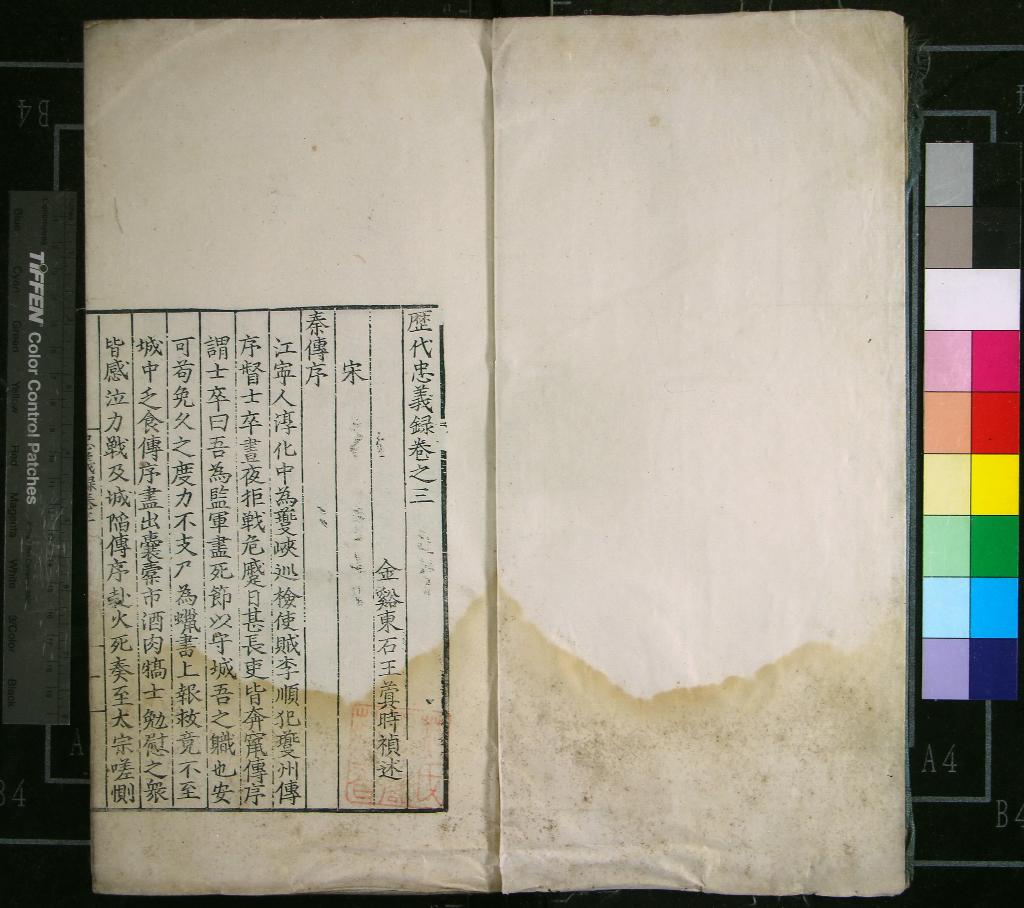 歷代忠義録卷之三
金谿東石王蓂時禎述
宋
秦傳序
江寧人淳化中為夔峽廵檢使賊李順犯夔州傳
序督士卒晝夜拒戰危蹙日甚長吏皆奔竄傳序
謂士卒曰吾為監軍盡死節以守城吾之職也安
可苟免久之度力不支乃為蠟書上報救竟不至
城中乏食傳序盡出囊橐市酒肉犒士勉慰之衆
皆感泣力戰及城陷傳序赴火死奏至太宗嗟惻
TIFFEN Color Control Patches
Blue Cyan Green Yellow Red Magenta White 3/Color Black
A4
B4
B4